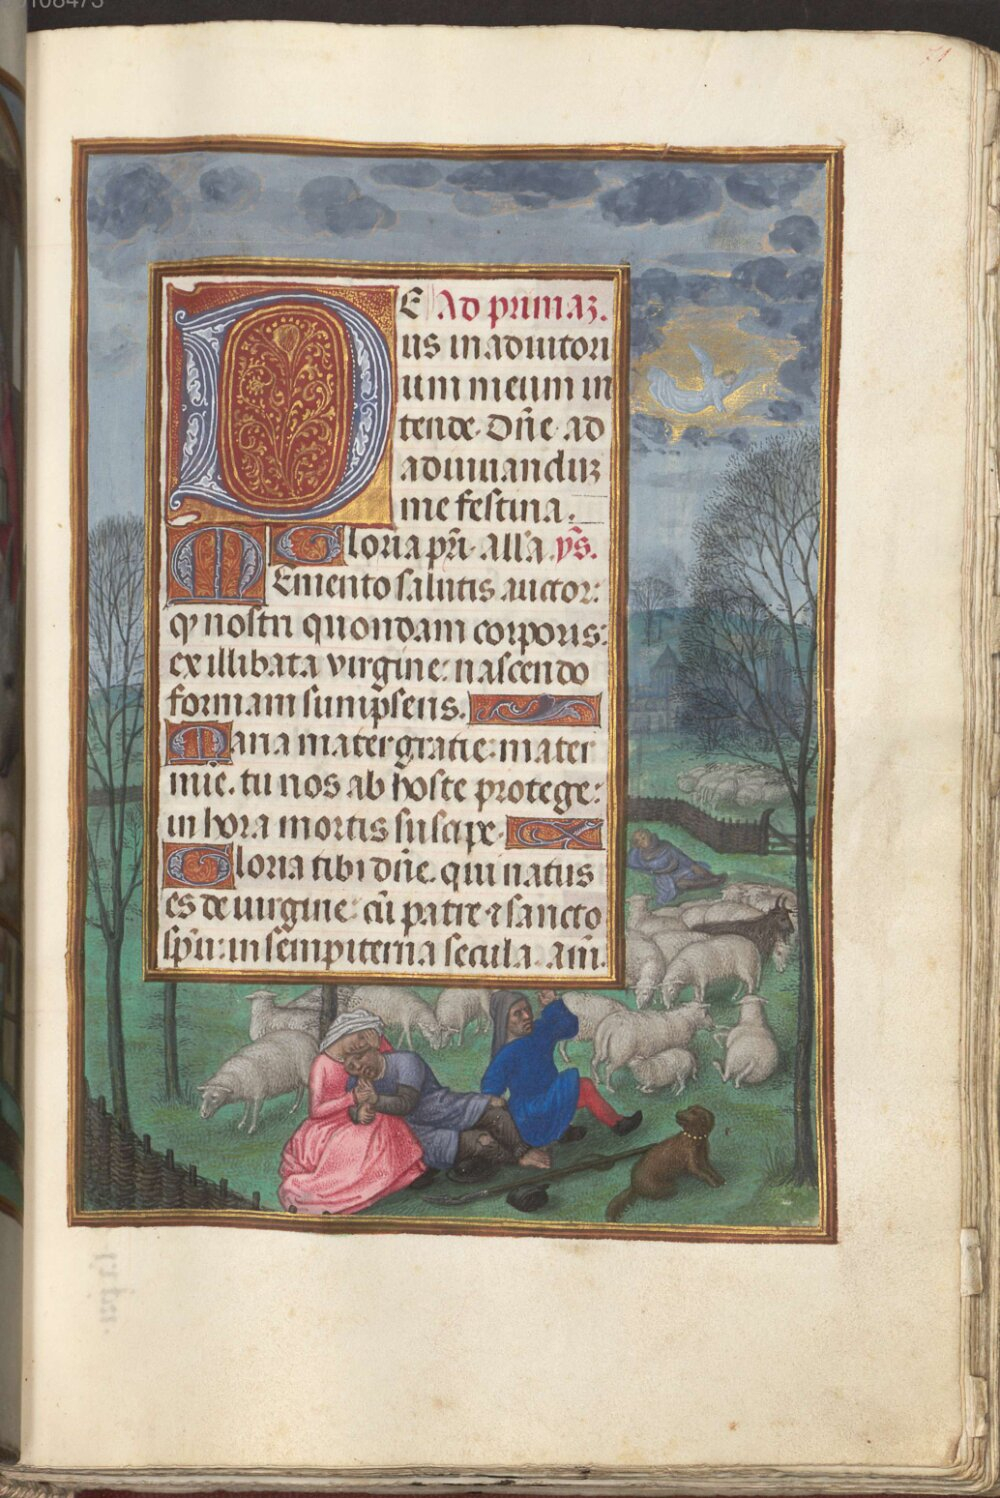 DE Ad primaȝ.
us in adiutori
um meum in
tende. Dñe ad
adiuuanduȝ
me festina.
Gloria pr̃i. all'a. v̄s.
Memento salutis auctor:
ꝙ nostri quondam corporis:
ex illibata virgine: nascendo
formam sumpseris.
Maria mater gratie: mater
mie. tu nos ab hoste protege:
in hora mortis suscipe.
Gloria tibi dñe. qui natus
es de uirgine: cũ patre ⁊ sancto
spũ: in sempiterna secula. am̃.